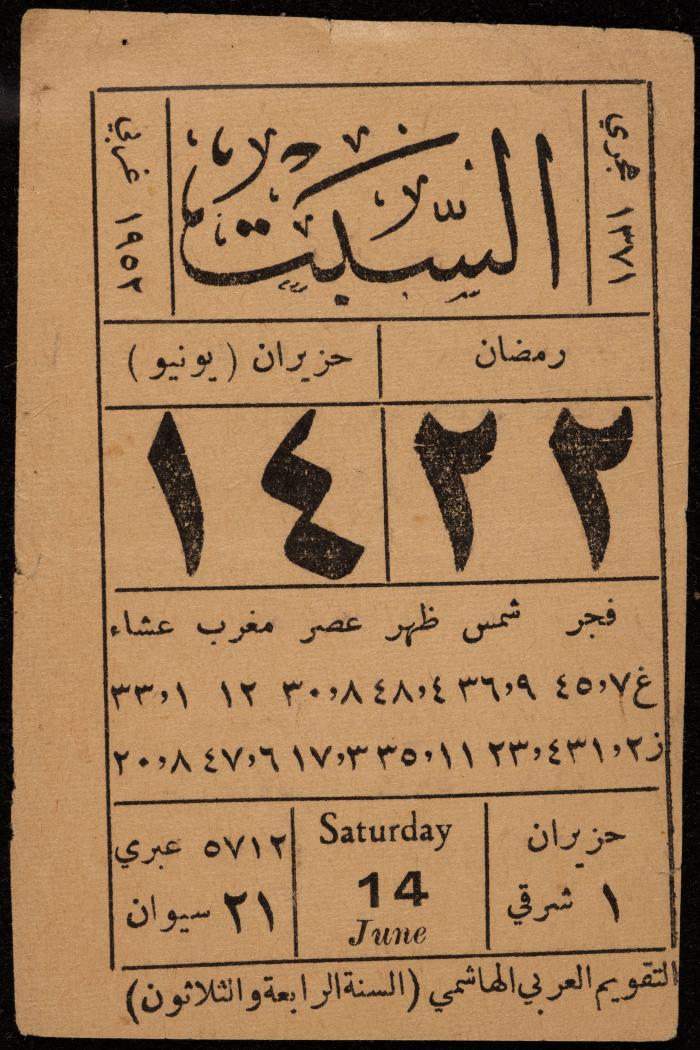 ١٣٧١ هجري
السبت
١٩٥٢ غربي
رمضان حزيران (يونيو)
٢٢ ١٤
فجر شمس ظهر عصر مغرب عشاء
غ ٧و٤٥ ٩و٣٦ ٤و٤٨ ٨و٣٠ ١٢ ١و٣٣
ز ٢و٣١ ٤و٢٣ ١١و٣٥ ٣و١٧ ٦و٤٧ ٨و٢٠
حزيران
١ شرقي
Saturday
14
June
٥٧١٢ عبري
٢١ سيوان
التقويم العربي الهاشمي (السنة الرابعة والثلاثون)